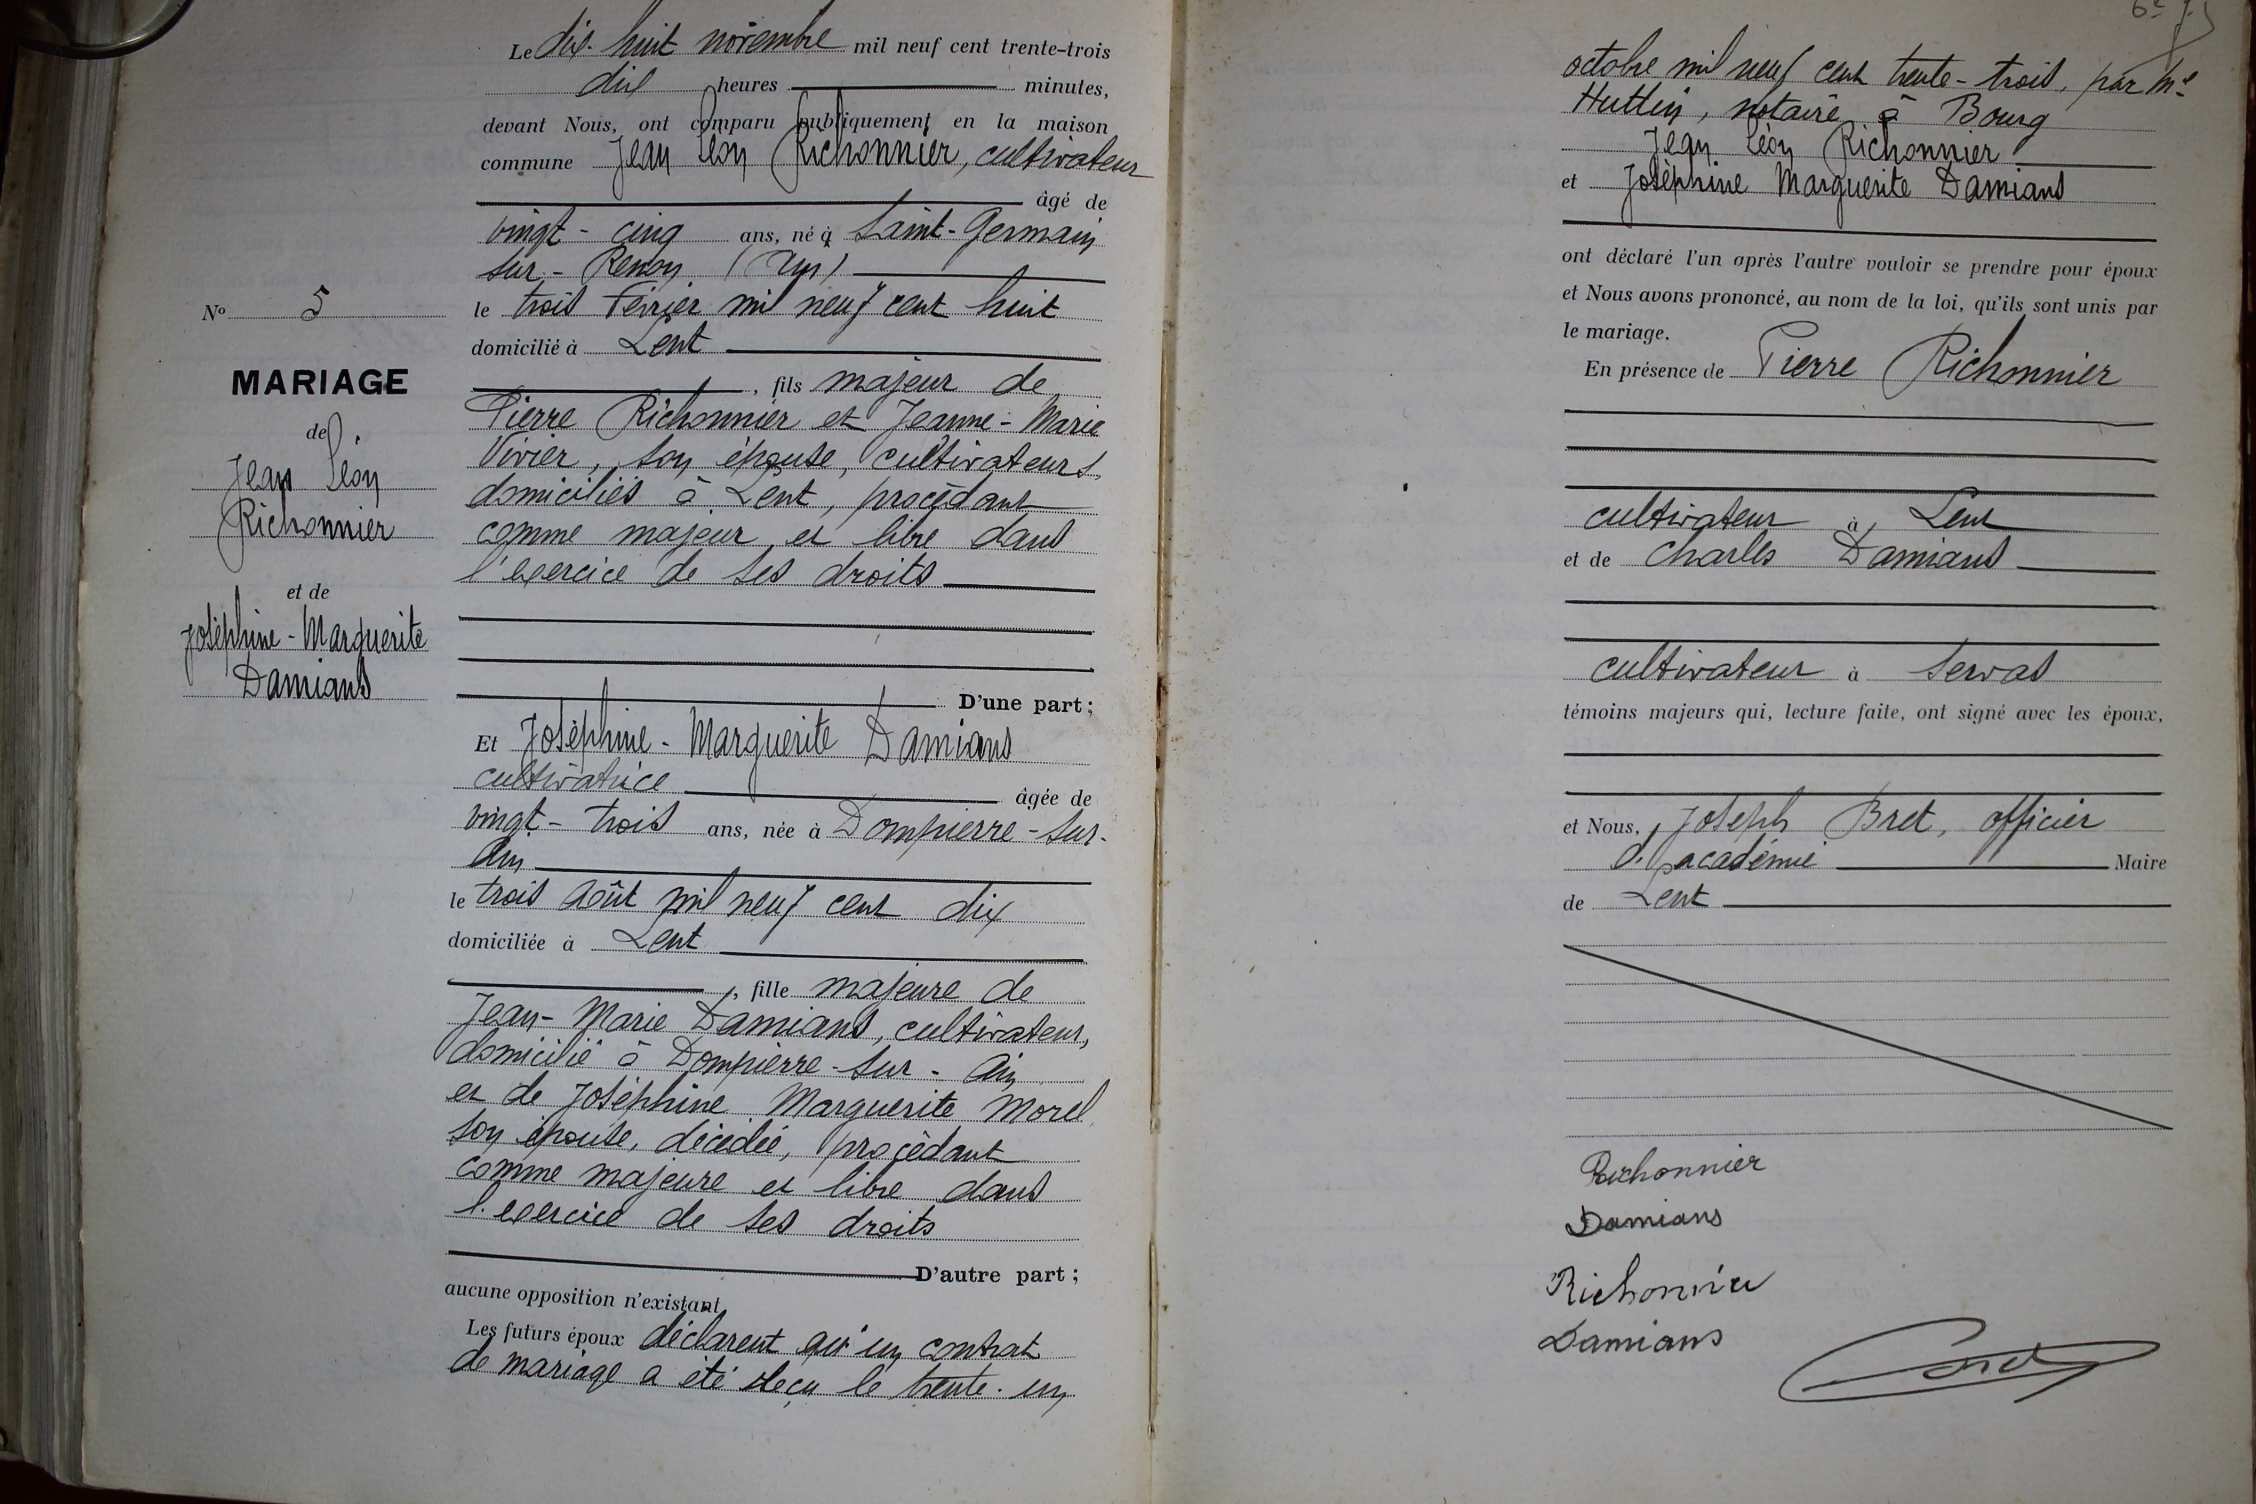 Le dix-huit novembre mil neuf cent trente-trois
dix heures minutes,
devant Nous, ont comparu publiquement en la maison
commune Jean Léon Richonnier, cultivateur
âgé de
vingt-cinq ans, né à Saint-Germain
sur-Renon (Ain)
le trois Février mil neuf cent huit
domicilié à Lent
, fils majeur de
Pierre Richonnier et Jeanne-Marie
Vivier, son épouse, cultivateurs,
domiciliés à Lent, procédant
comme majeur et libre dans
l'exercice de ses droits
D'une part;
Et Joséphine-Marguerite Damians
cultivatrice
âgée de
vingt-trois ans, née à Dompierre-sur-
Ain
le trois Août mil neuf cent dix
domiciliée à Lent
, fille majeure de
Jean-Marie Damians, cultivateur,
domicilié à Dompierre-sur-Ain
et de Joséphine Marguerite Morel
son épouse, décédée, procédant
comme majeure et libre dans
l'exercice de ses droits
D'autre part;
aucune opposition n'existant
Les futurs époux déclarent qu'un contrat
de mariage a été reçu le trente-un
No 5
MARIAGE
de
Jean Léon
Richonnier
et de
Joséphine-Marguerite
Damians
octobre mil neuf cent trente-trois, par Me
Huttin, notaire à Bourg
Jean Léon Richonnier
et Joséphine Marguerite Damians
ont déclaré l'un après l'autre vouloir se prendre pour époux
et Nous avons prononcé, au nom de la loi, qu'ils sont unis par
le mariage.
En présence de Pierre Richonnier
cultivateur à Lent
et de Charles Damians
cultivateur à Servas
témoins majeurs qui, lecture faite, ont signé avec les époux,
et Nous, Joseph Bret, officier
d'académie Maire
de Lent
Richonnier
Damians
Richonnier
Damians